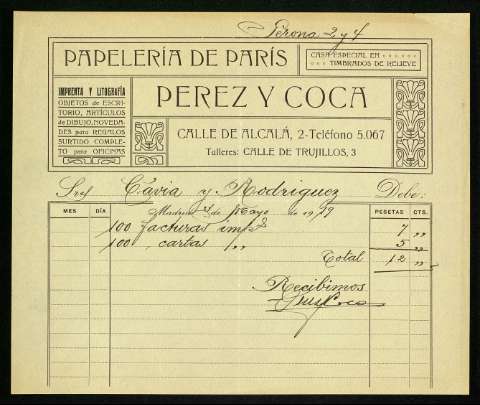 Perona 2 y 4
PAPELERÍA DE PARÍS
CASA ESPECIAL EN
TIMBRADOS DE RELIEVE
IMPRENTA Y LITOGRAFÍA
OBJETOS de ESCRI-
TORIO, ARTÍCULOS
de DIBUJO, NOVEDA-
DES para REGALOS
SURTIDO COMPLE-
TO para OFICINAS
PEREZ Y COCA
CALLE DE ALCALÁ, 2-Teléfono 5.067
Talleres: CALLE DE TRUJILLOS, 3
Cavia y Rodriguez Debe:
MES DÍA PESETAS CTS.
Madrid de Mayo de 1919
100 facturas 7 „
100 cartas „ 5 „
Total 12 „
Recibimos